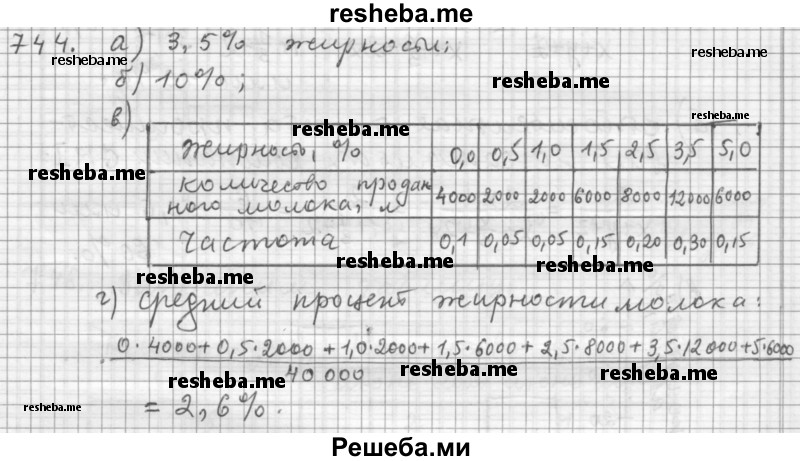 resheba.me
744. а) 3,5% жирности;
resheba.me resheba.me
б) 10%; resheba.me
в) resheba.me
resheba.me
Жирность, % 0,0 0,5 1,0 1,5 2,5 3,5 5,0
resheba.me
количество продан
ного молока, л 4000 2000 2000 6000 8000 12000 6000
Частота 0,1 0,05 0,05 0,15 0,20 0,30 0,15
resheba.me resheba.me
resheba.me
г) средний процент жирности молока:
0·4000+0,5·2000+1,0·2000+1,5·6000+2,5·8000+3,5·12000+5·6000
40 000
resheba.me resheba.me resheba.me
resheba.me = 2,6%.
Решеба.ми